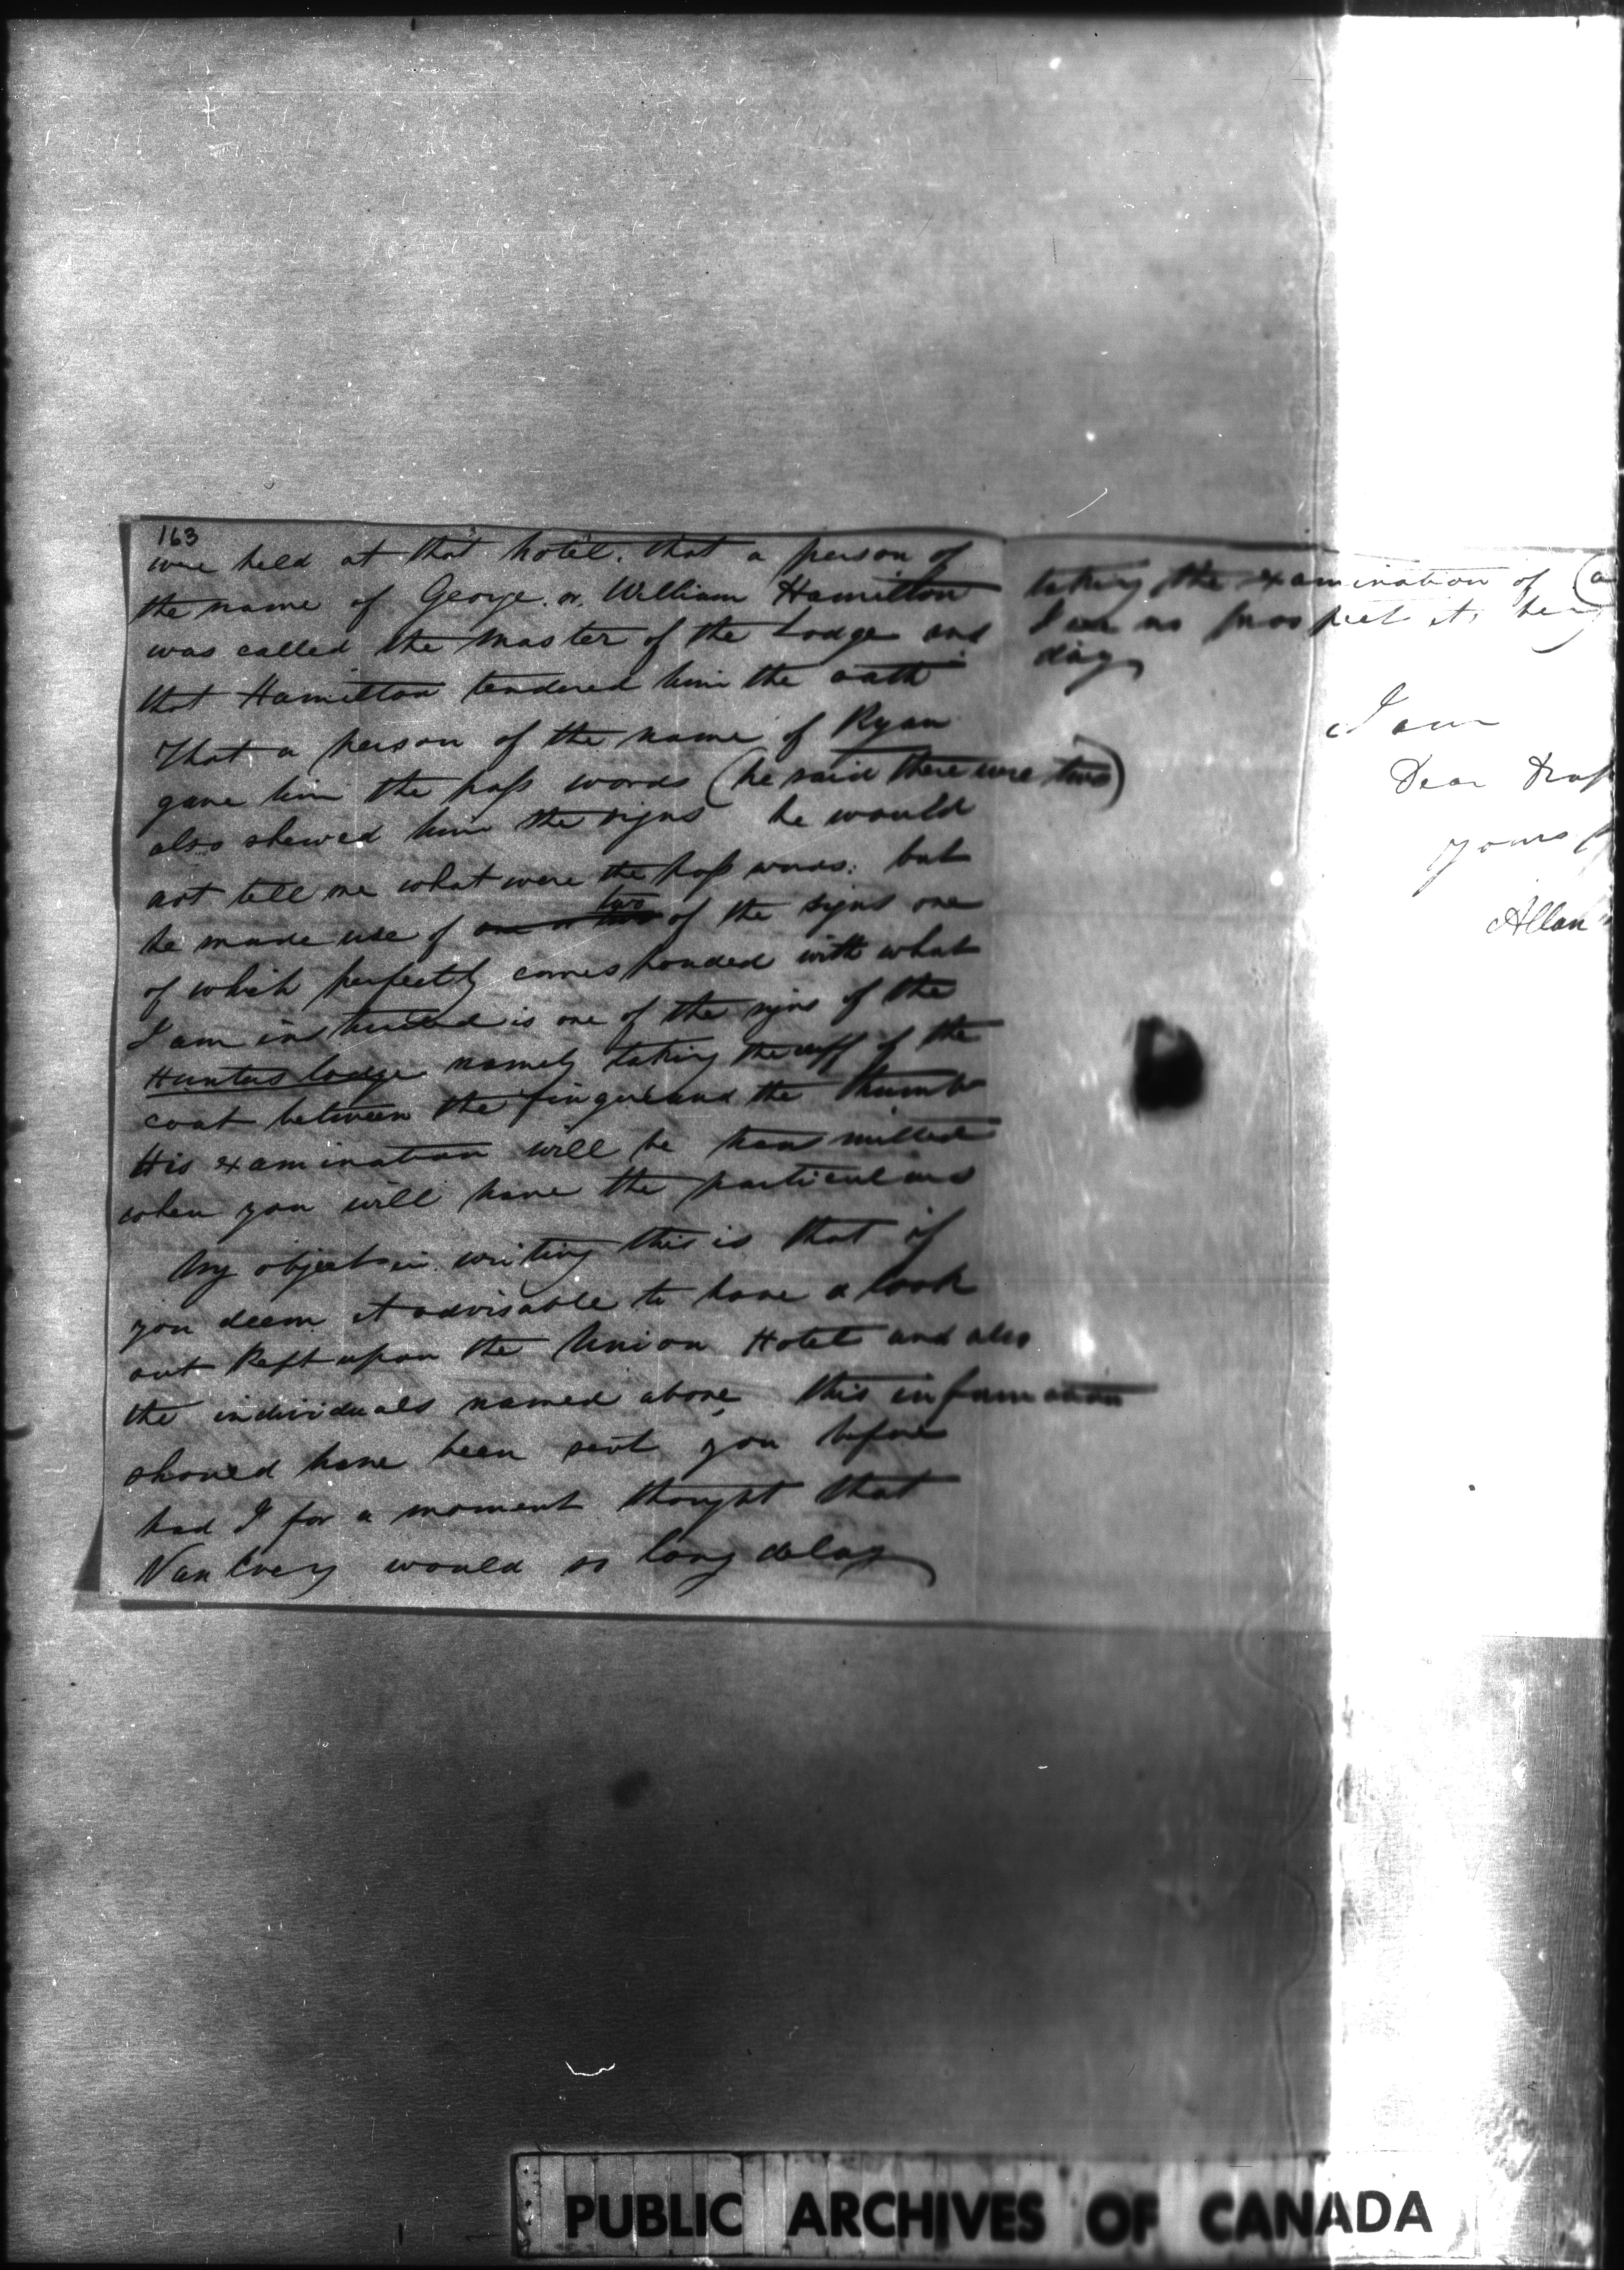 163
were held at that hotel. that a person of
the name of George. or. William Hamilton
was called the Master of the Lodge and
that Hamilton tendered him the oath
That a person of the name of Ryan
gave him the pass words (he said there were two)
also shewed him the signs he would
not tell me what were the pass words. but
he made use of two of the signs one
of which perfectly corresponded with what
I am instructed is one of the signs of the
Hunters lodge namely taking the cuff of the
coat between the finger and the thumb
His examination will be transmitted
when you will have the particulars
My object in writing this is that if
you deem it advisable to have a look
out kept upon the Union Hotel and also
the individuals named above this information
should have been sent you before
had I for a moment thought that
Van Every would so long delay
taking the examination of (a
I see no prospect its being
day
I am
Dear
yours
Allan
PUBLIC ARCHIVES OF CANADA